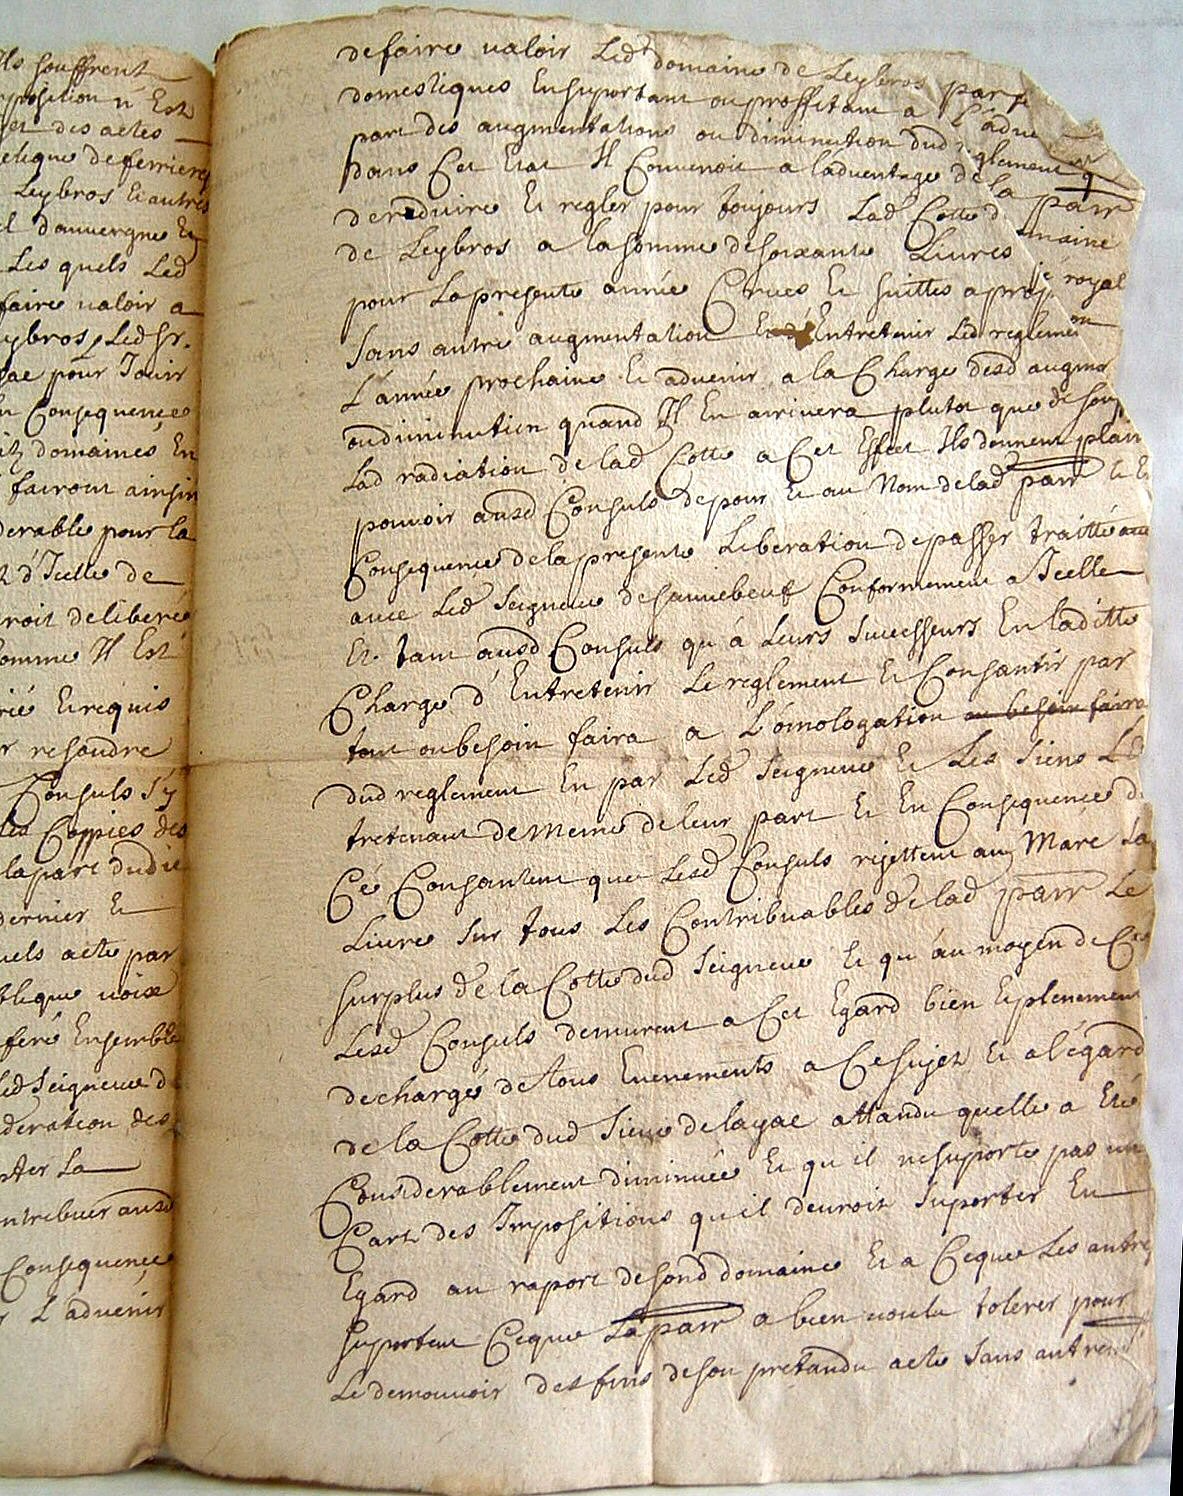 Ils souffrent
position n'Est
et des actes
elique de ferrieres
Leybros Et autres
el dauvergne Et
Les quels Led
faire valoir a
eybros, Led Sr.
pour Jouir
Consequence
domaines En
fairont ainsin
derable pour la
d'Icelle de
roit deliberé
comme Il Est
rié Et requis
r resoudre
Consuls s'y
les Coppies des
la part dudit
dernier Et
uels acte par
blique voix
feré Ensemble
led Seigneur d
deration des
la
ntribuer ausd
Consequence
L'advenir
de faire valoir Led domaine de Leybros par s
domestiques En suportant ou proffitant a L'adve
part des augmentations ou diminution dud reglement
Dans Cet Etat Il Convenoit a ladventage de la parr
de reduire Et regler pour toujours Lad Cotte d maine
de Leybros a la somme de soixante Livres
pour La presente année Crues Et suittes a royal
sans autre augmentation Entretenir Led reglement
L'année prochaine Et advenir a la Charge desd augmen
ou diminution quand Il En arrivera plutot que de
Lad radiation de lad Cotte a Cet Effet Ils donnent plain
pouvoir ausd Consuls de pour Et au Nom de lad parr Et En
Consequence de la presente Liberation de passer traitté
avec Led Seigneur de Conformement a Icelle
Et tant ausd Consuls qu'à Leurs successeurs En laditte
Charge d'Entretenir Le reglement Et Consantir par
tout ou besoin faira a L'omologation ou besoin faira
dud reglement En par Led Seigneur Et Les siens L E
tretenant de meme de leur part Et En Consequence d
Cé Consantent que Lesd Consuls rejettent au Marc La
Livre sur tous Les Contribuables de lad parr Le
surplus de la Cotte dud Seigneur Et qu'au moyen de Ce
Lesd Consuls demurent a Cet Egard bien Et plenement
dechargés de tous Evenements a Ce sujet Et a l'égard
de la Cotte dud sieur de layac attandu quelle a Eté
Considerablement diminuée Et qu'il ne suporte pas une
Part des Impositions qu'il devroit suporter En
Egard au raport de sond domaine Et a Ceque Les autres
suportent Ceque La parr a bien voulu tolerer pour
Le demouvoir des fins de son pretandu acte sans autrement